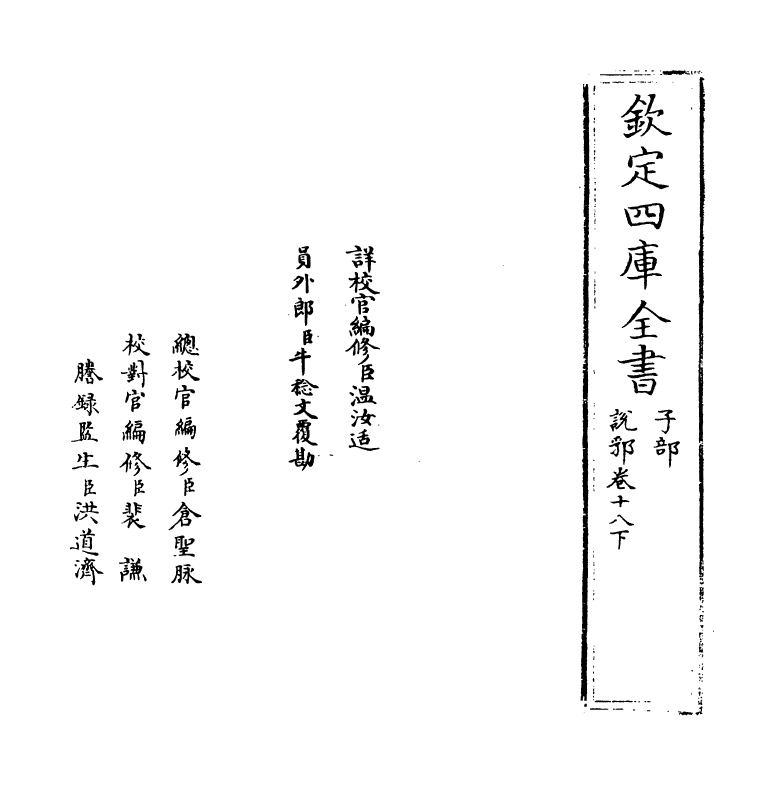 欽定四庫全書
子部
説郛卷十八下
詳校官編修臣温汝适
員外郎臣牛稔文覆勘
總校官編修臣倉聖脉
校對官編修臣裴謙
謄錄監生臣洪道濟